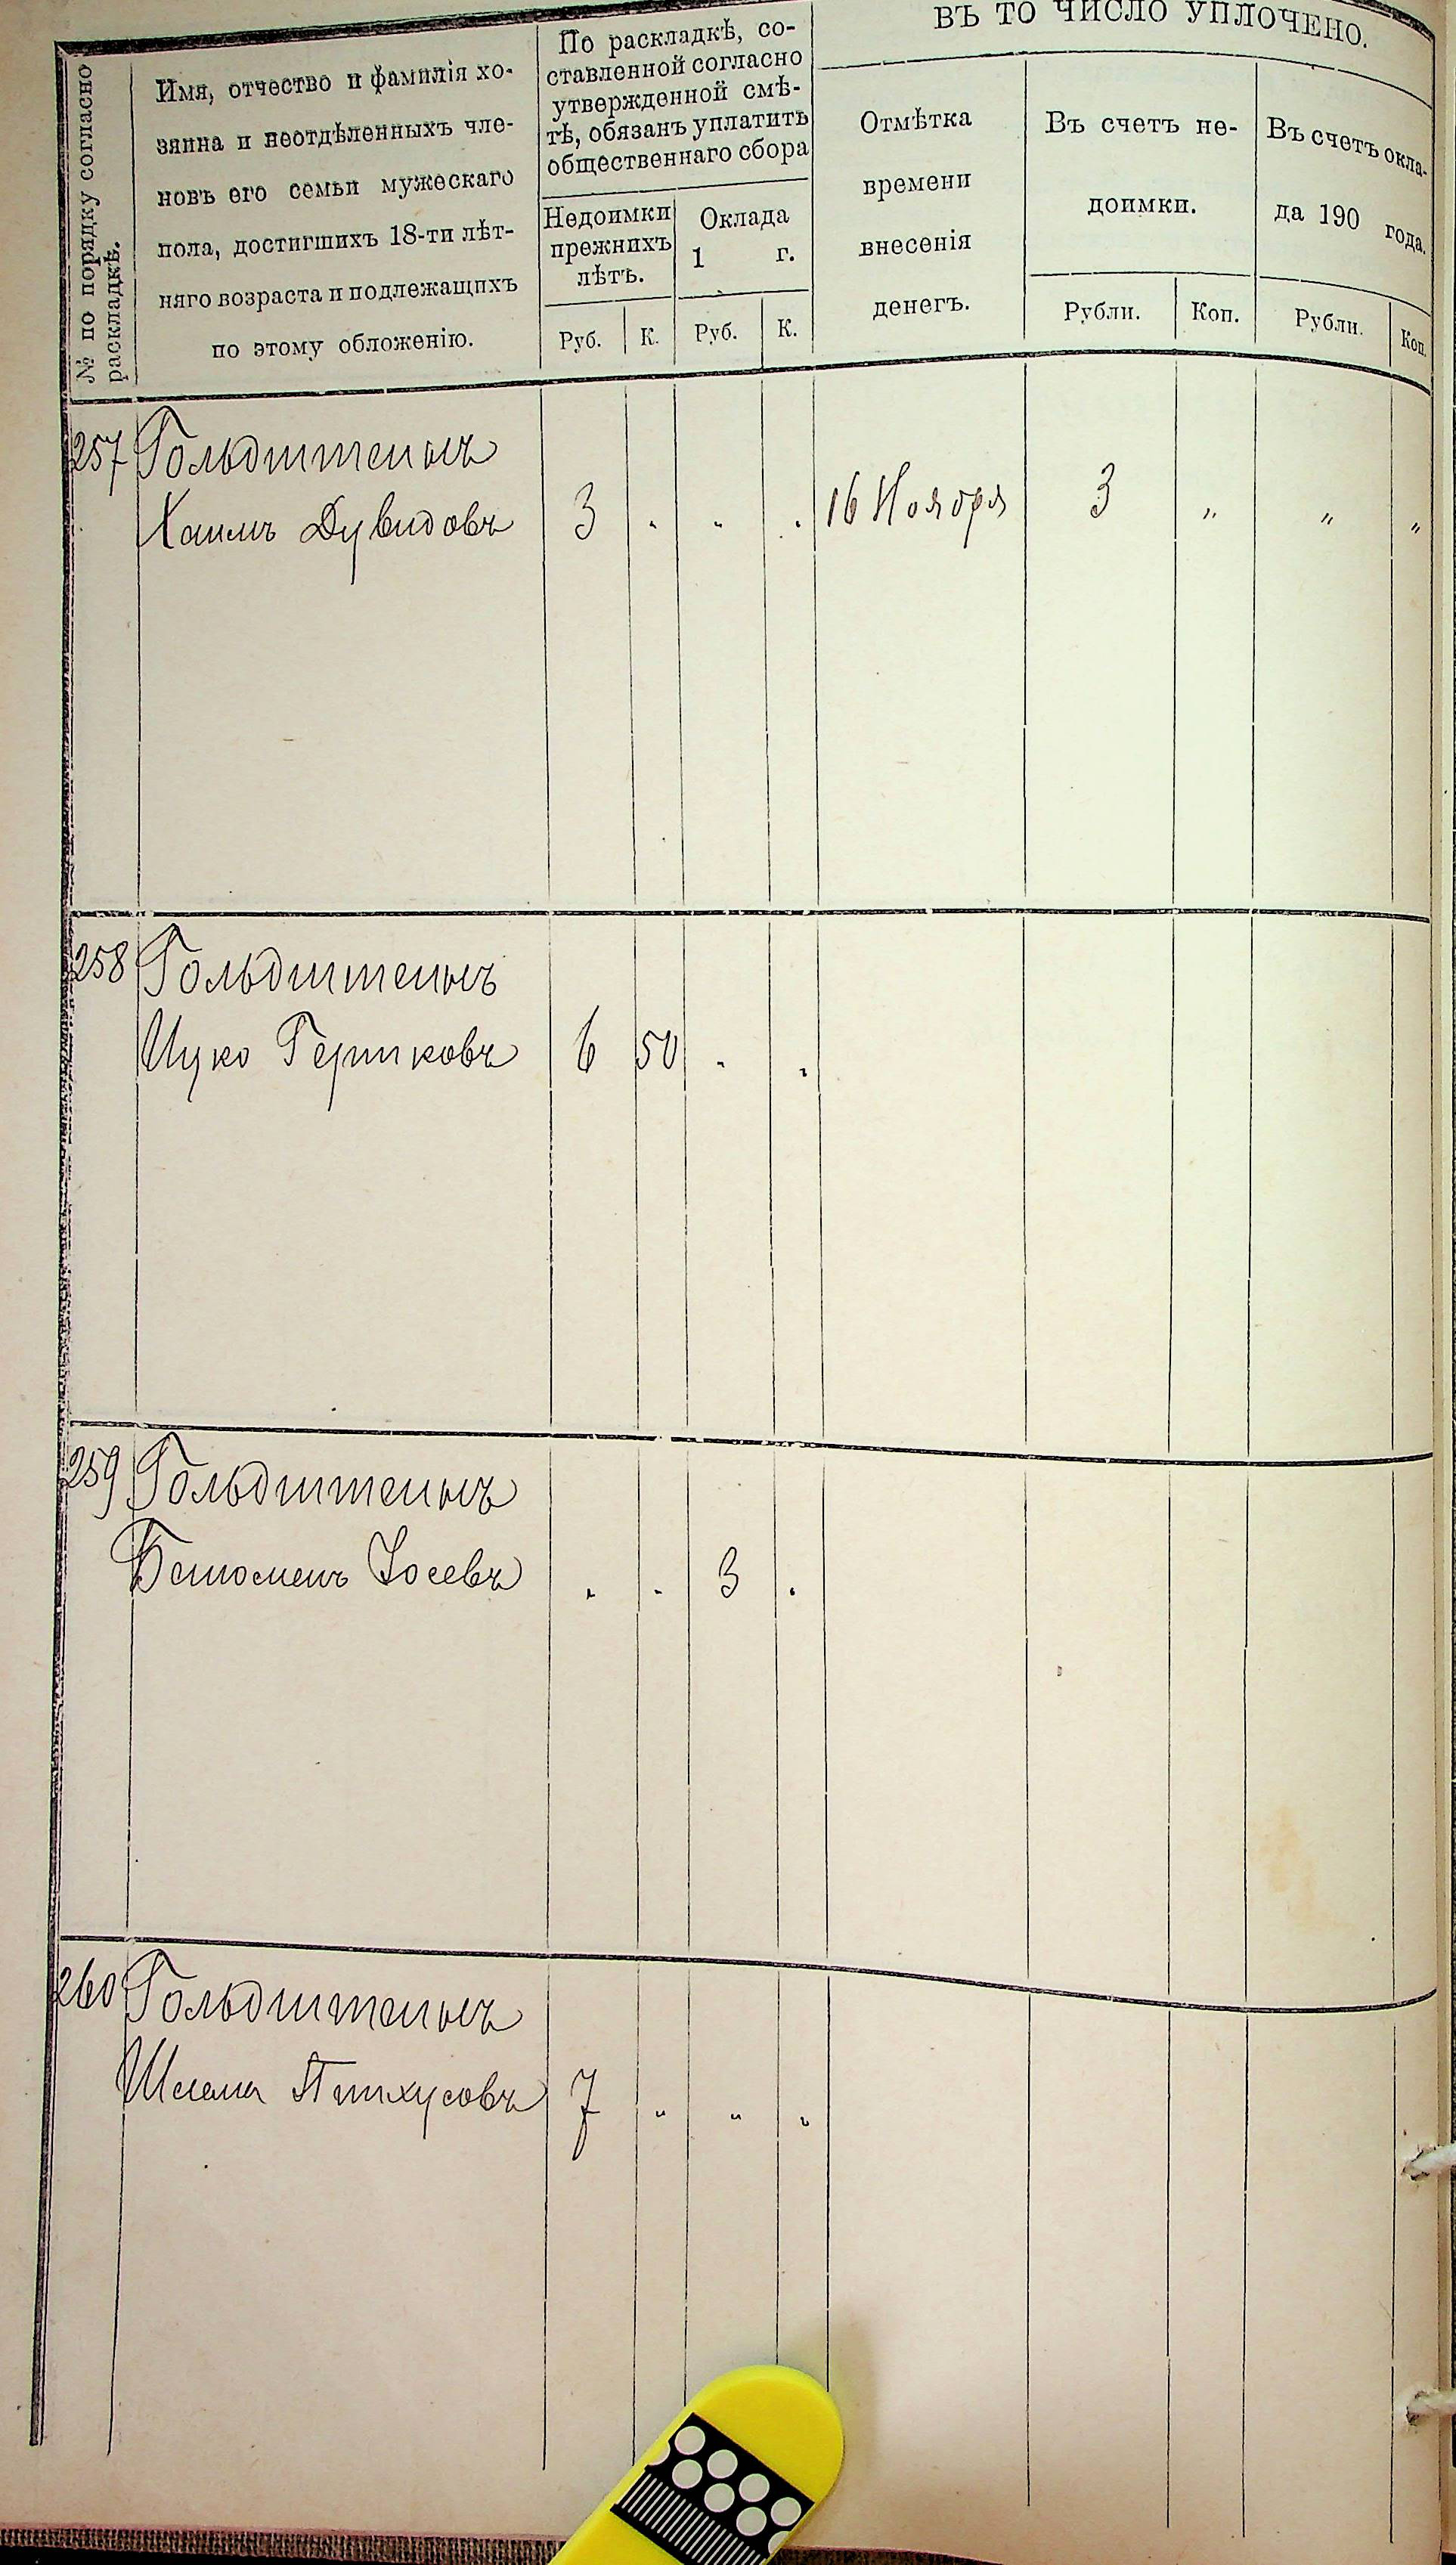 № по порядку согласно
раскладкѣ.
Имя, отчество и фамилія хо-
зяина и неотдѣленныхъ чле-
новъ его семьи мужескаго
пола, достигшихъ 18-ти лѣт-
няго возраста и подлежащихъ
по этому обложенію.
По раскладкѣ, со-
ставленной согласно
утвержденной смѣ-
тѣ, обязанъ уплатить
общественнаго сбора
Недоимки
прежнихъ
лѣтъ.
Оклада
1 г.
Руб. К. Руб. К.
ВЪ ТО ЧИСЛО УПЛОЧЕНО.
Отмѣтка
времени
внесенія
денегъ.
Въ счетъ не-
доимки.
Рубли. Коп.
Въ счетъ окла-
да 190 года.
Рубли. Коп.
257 Гольдштейнъ
Хаимъ Дувидовъ 3 " " " 16 Ноября 3 " " "
258 Гольдштейнъ
Ицко Гершковъ 6 50 " "
259 Гольдштейнъ
Іосевъ " " 3 "
260 Гольдштейнъ
Шлема Пинхусовъ 7 " " "